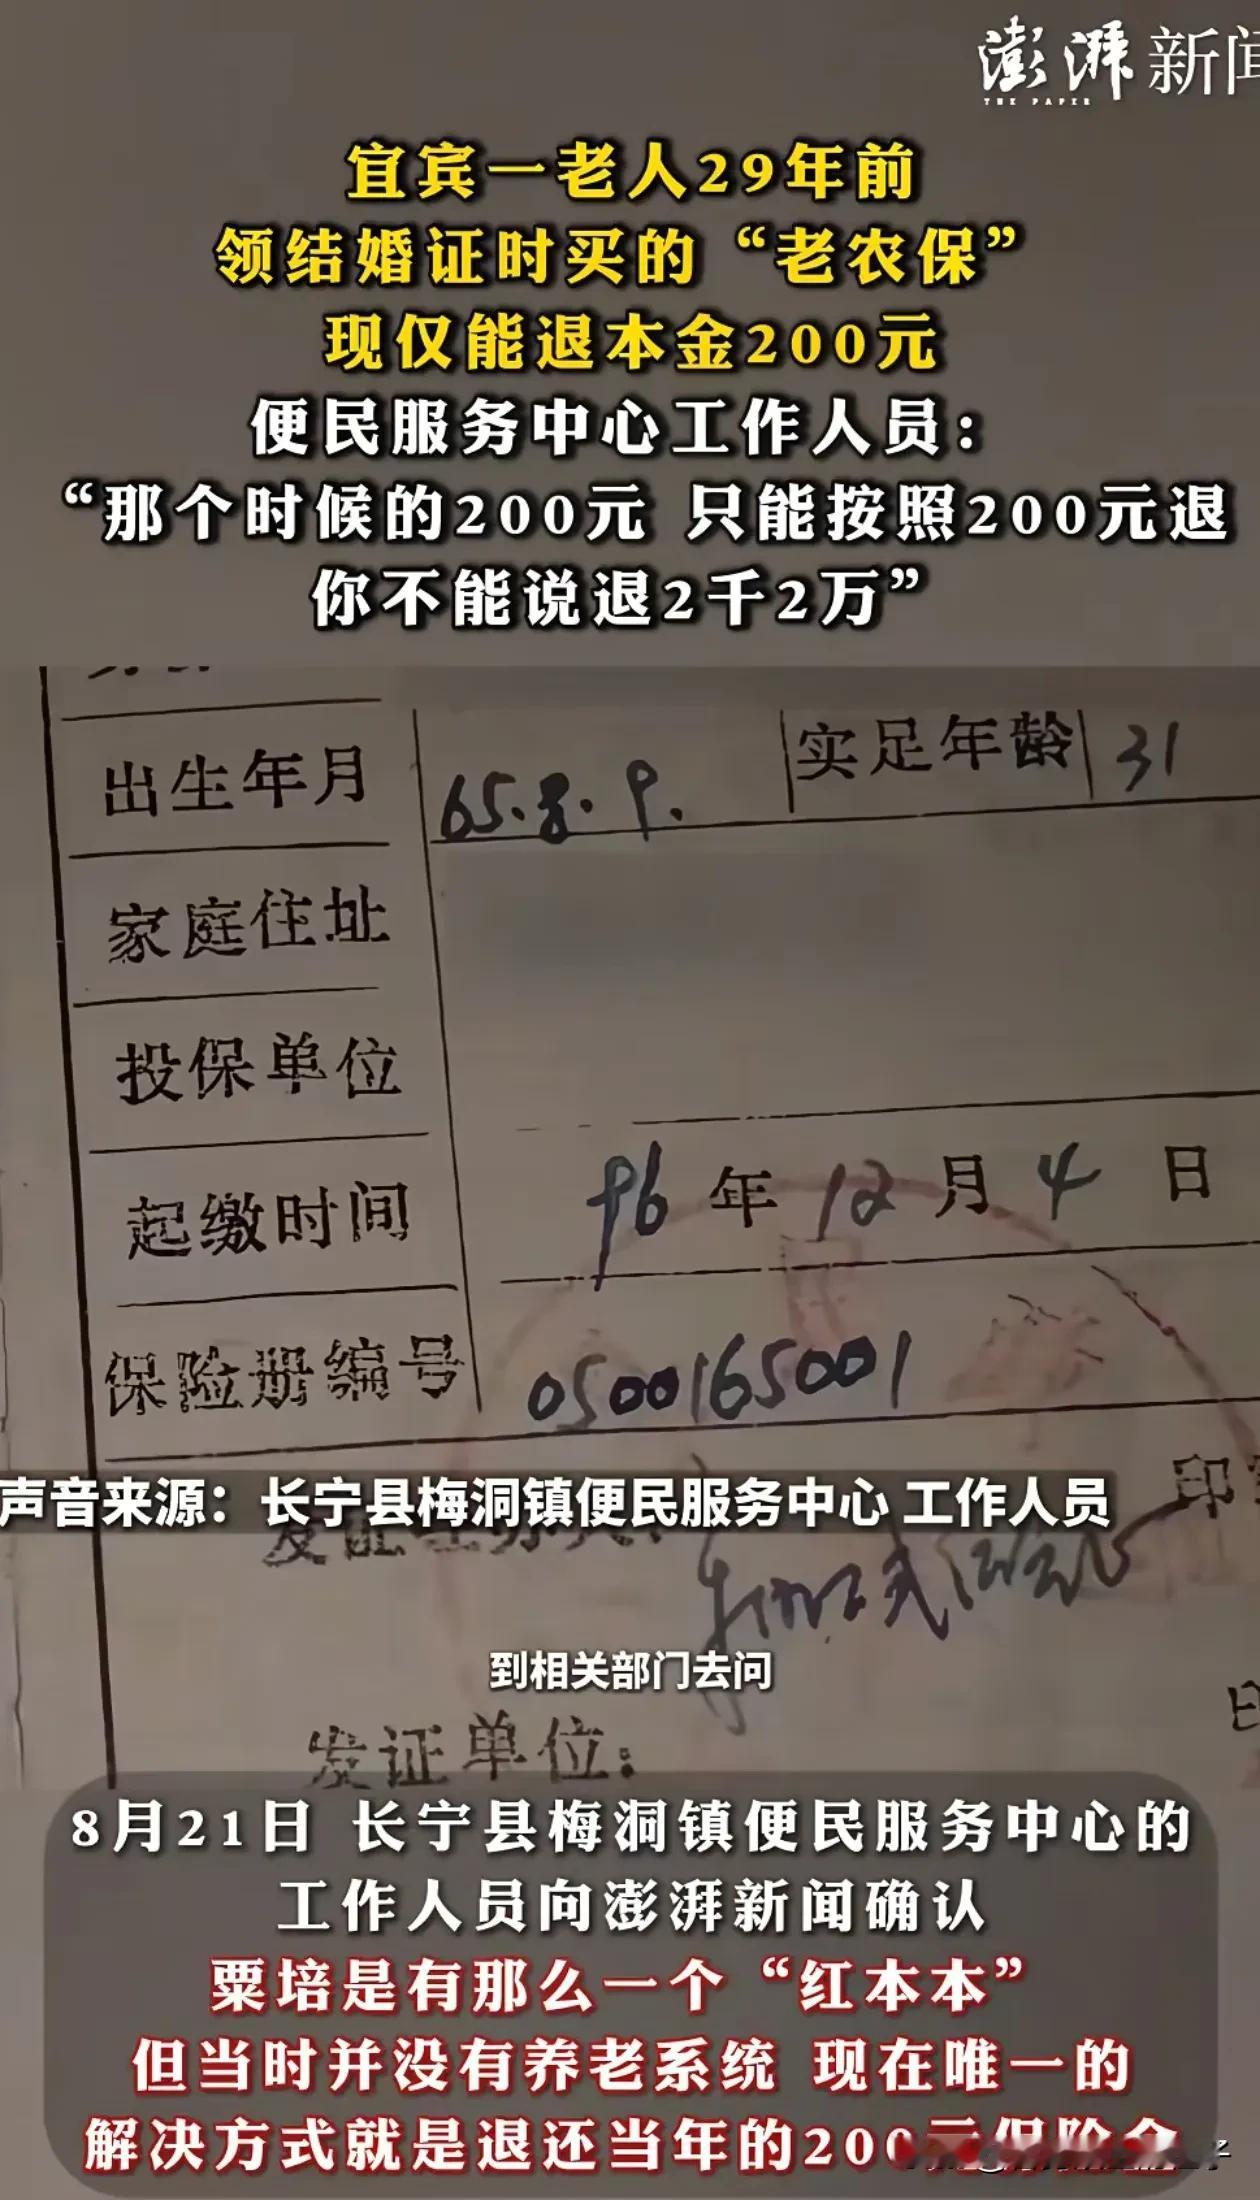 澎湃新闻
THE PAPER
宜宾一老人29年前
领结婚证时买的“老农保”
现仅能退本金200元
便民服务中心工作人员：
“那个时候的200元 只能按照200元退
你不能说退2千2万”
出生年月 65.8.9. 实足年龄 31
家庭住址
投保单位
起缴时间 96年12月4日
保险册编号 0500165001
声音来源：长宁县梅洞镇便民服务中心 工作人员
到相关部门去问
发证单位：
8月21日 长宁县梅洞镇便民服务中心的
工作人员向澎湃新闻确认
粟培是有那么一个“红本本”
但当时并没有养老系统 现在唯一的
解决方式就是退还当年的200元保险金